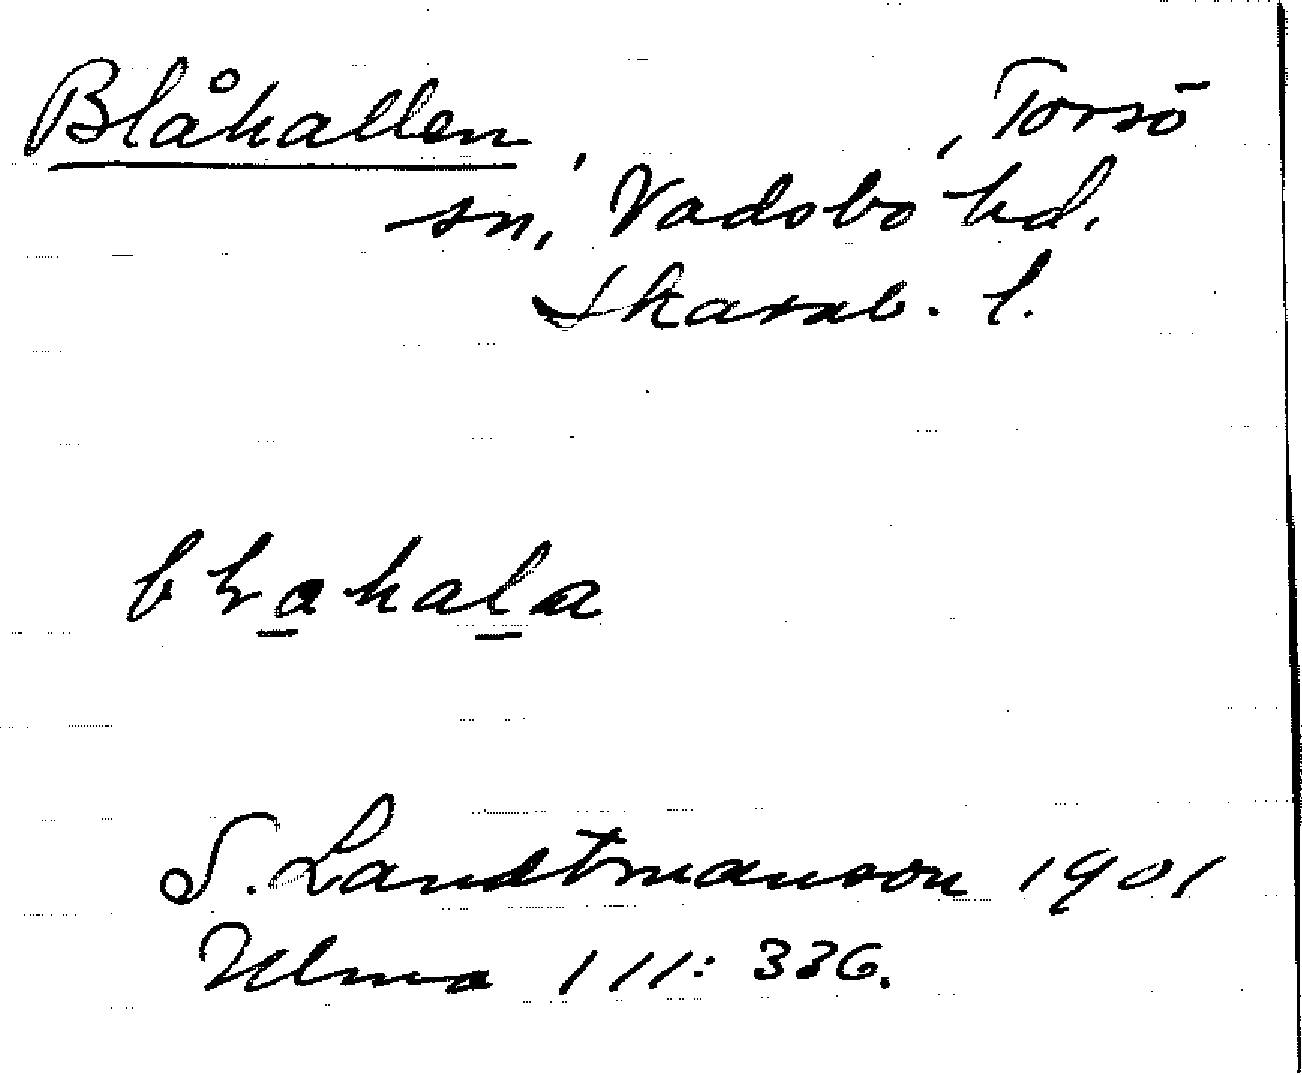 Blåhallen, , Torsö
sn, Vadsbo hd.
Skarab. l.
bḷahala
S. Landtmanson 1901
Ulma 111: 336.